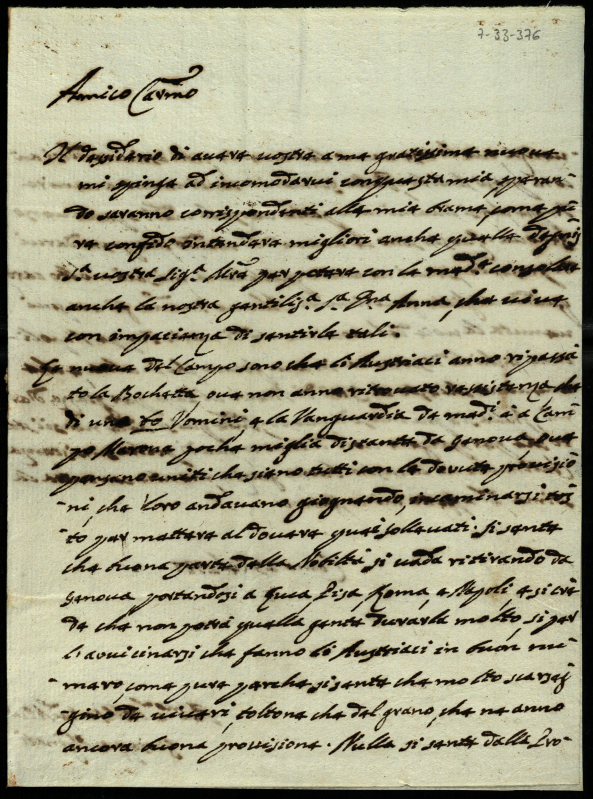 7-33-376
Amico Carmo
Il desiderio di avere vostre a me gratissime nuove
mi spinge ad incomodarvi con questa mia speran-
do saranno corrispondenti alle mie brame, come pu-
re confido intendere migliori anche quelle
vostra Sigra per potere con le medme consolare
anche la nostra gentilisa Sa Gna Anna, che vive
con impacienza di sentirle tali.
Le nuove del Campo sono che li Austriaci anno ripassa-
to la Bochetta ove non anno ritrovato resistenza che
di uno 60 Uomini, e la Vanguardia de medi è a Cam-
po Morone poche miglia distante da Genova, ove
sperano uniti che sieno tutti con le dovute provisio-
ni, che loro andavano giognendo, incaminarsi tos-
to per mettere al dovere quei sollevati. Si sente
che buona parte della Nobiltà si vada ritirando da
Genova portandosi a Luca Pisa, Roma, e Napoli, e si cre-
de che non potrà quella gente durarla molto, si per
l'avvicinarsi che fanno li Austriaci in buon nu-
mero, come pure perche si sente che molto scarseg-
gino de viveri, toltone che del grano, che ne anno
ancora buona provisione. Nulla si sente dalla Pro-